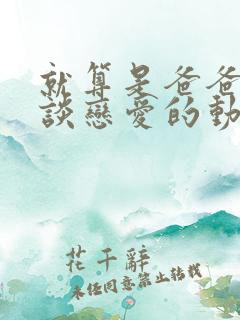 就算是爸爸
談戀愛的動
花千辭
未經同意禁止轉載